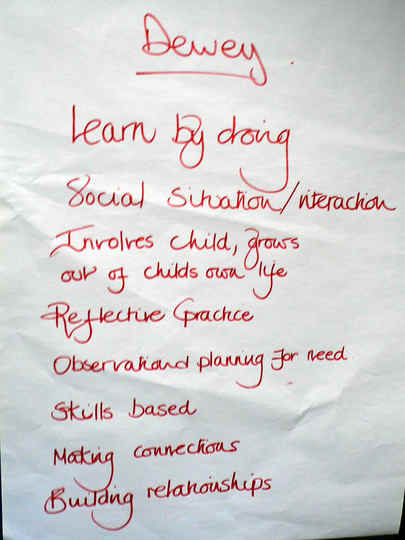 Dewey
Learn by doing
Social Situation/interaction
Involves child, grows
out of childs own life
Reflective Practice
Observation and planning for need
Skills based
Making connections
Building relationships